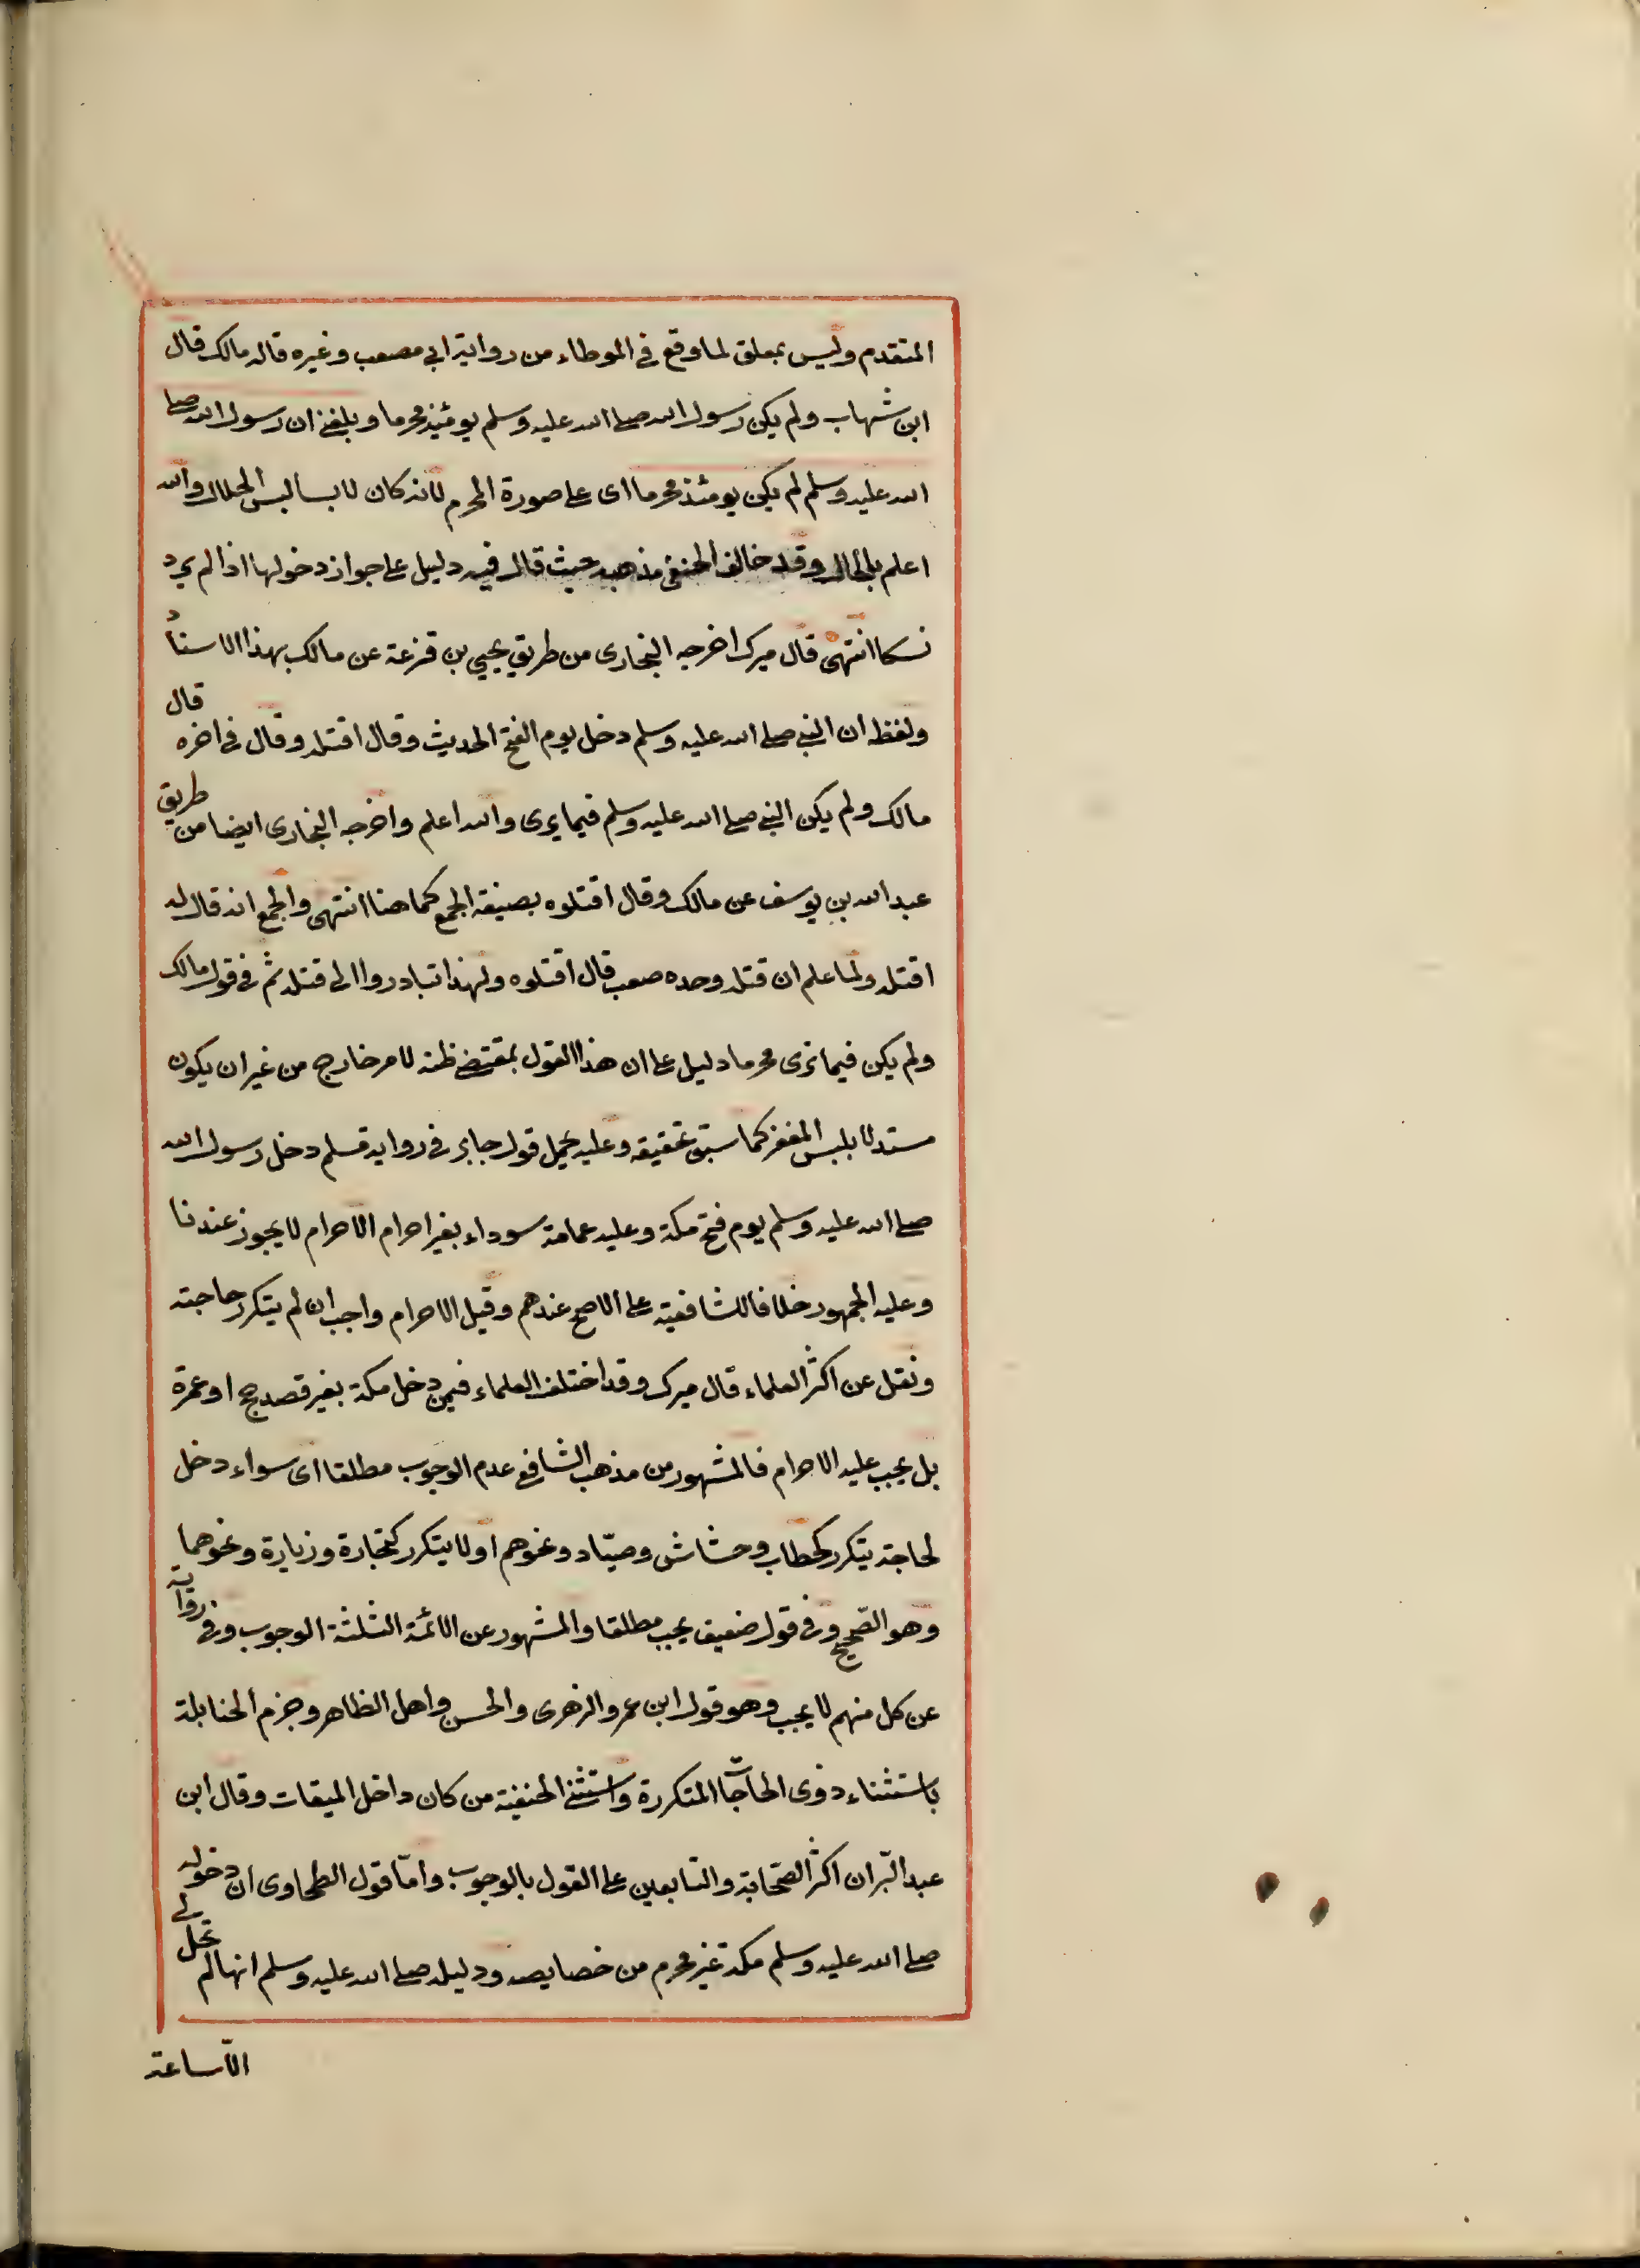 المتقدم وليس بمعلق لما وقع في الموطاء من رواية ابي مصعب وغيره قاله مالك قال
ابن شهاب ولم يكن رسول الله صلى الله عليه وسلم يومئذ محرما وبلغني ان رسول الله صلى
الله عليه وسلم لم يكن يومئذ محرما اى على صورة المحرم لانه كان لابسا لبس الحلال والله
اعلم بالحال وقد خالف الحنفي مذهبه حيث قال فيه دليل على جواز دخولها اذا لم يرد
نسكا انتهى قال ميرك اخرجه البخارى من طريق يحيي بن قزعة عن مالك بهذا الاسناد
ولفظه ان النبي صلى الله عليه وسلم دخل يوم الفتح الحديث وقال اقتله وقال في اخره قال
مالك ولم يكن النبي صلى الله عليه وسلم فيما يرى والله اعلم واخرجه البخارى ايضا من طريق
عبد الله بن يوسف عن مالك وقال اقتلوه بصيغة الجمع كما هنا انتهى والجمع انه قال له
اقتله ولما علم ان قتله وحده صعب قال اقتلوه ولهذا تبادروا الى قتله ثم في قول مالك
ولم يكن فيما نرى محرما دليل على ان هذا القول بمقتضى ظنه لامر خارج من غير ان يكون
مستدلا بلبس المغفر كما سبق تحقيقه وعليه يحمل قول جابر في رواية مسلم دخل رسول الله
صلى الله عليه وسلم يوم فتح مكة وعليه عمامة سوداء بغير احرام الاحرام لا يجوز عندنا
وعليه الجمهور خلافا للشافعية على الاصح عندهم وقيل الاحرام واجب ان لم يتكرر حاجته
ونقل عن اكثر العلماء قال ميرك وقد اختلف العلماء فيمن دخل مكة بغير قصد حج او عمرة
بل يجب عليه الاحرام فالمشهور من مذهب الشافعي عدم الوجوب مطلقا اى سواء دخل
لحاجة يتكرر كحطاب وحشاش وصيّاد ونحوهم اولا يتكرر كتجارة وزيارة ونحوهما
وهو الصّحيح وفي قول ضعيف يجب مطلقا والمشهور عن الائمة الثلثة الوجوب وفي رواية
عن كل منهم لا يجب وهو قول ابن عمر والزهرى والحسن واهل الظاهر وجزم الحنابلة
باستثناء ذوى الحاجات المتكررة واستثنى الحنفية من كان داخل الميقات وقال ابن
عبد البّر ان اكثر الصّحابة والتابعين على القول بالوجوب وامّا قول الطحاوى ان دخوله
صلى الله عليه وسلم مكة غير محرم من خصايصه ودليله صلى الله عليه وسلم انها لم تحل لي
الّا ساعة